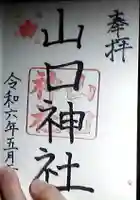 奉拝
山口神社
令和六年五月